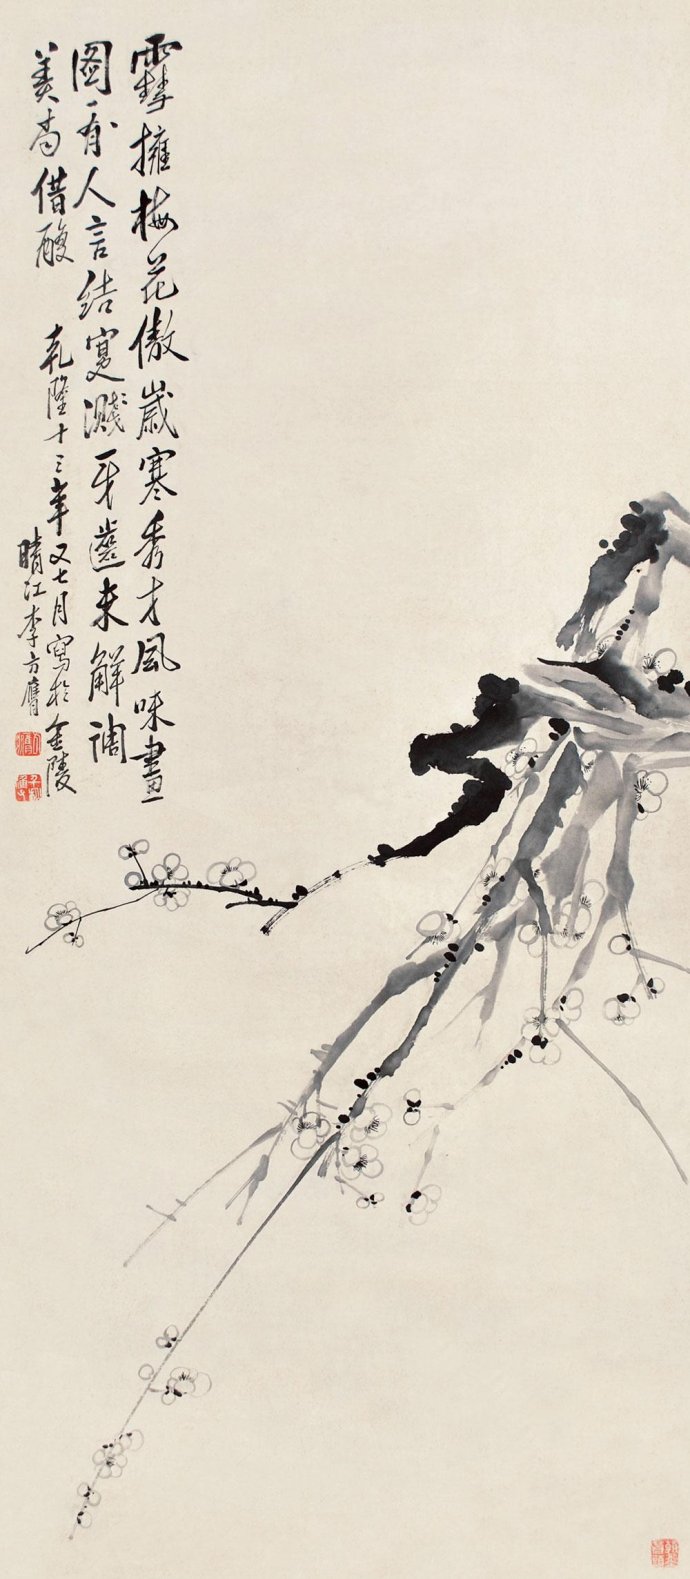 䨮擁梅花傲歲寒秀才風味畫
圖看人言結實濺牙齒未解調
羹尚借酸
乾隆十三年又七月寫於金陵
晴江李方膺